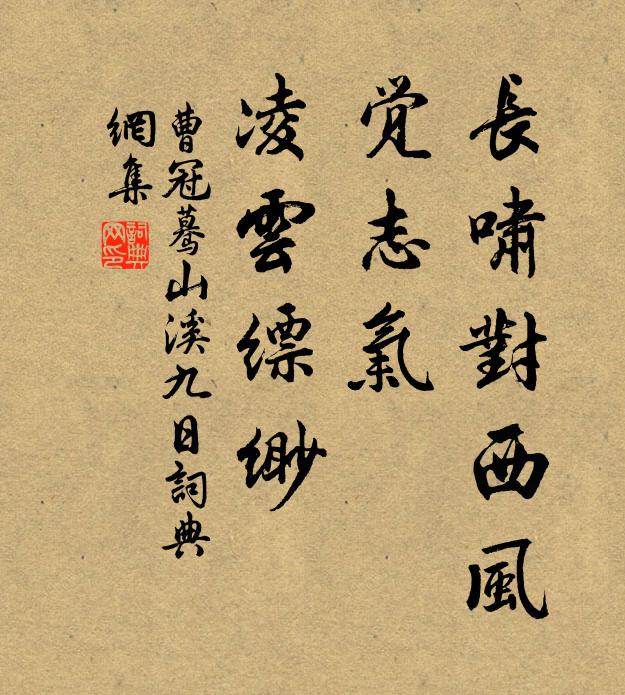 長嘯對西風
覺志氣
凌雲縹緲
曹冠驀山溪九日詞典
網集
詞典
网印